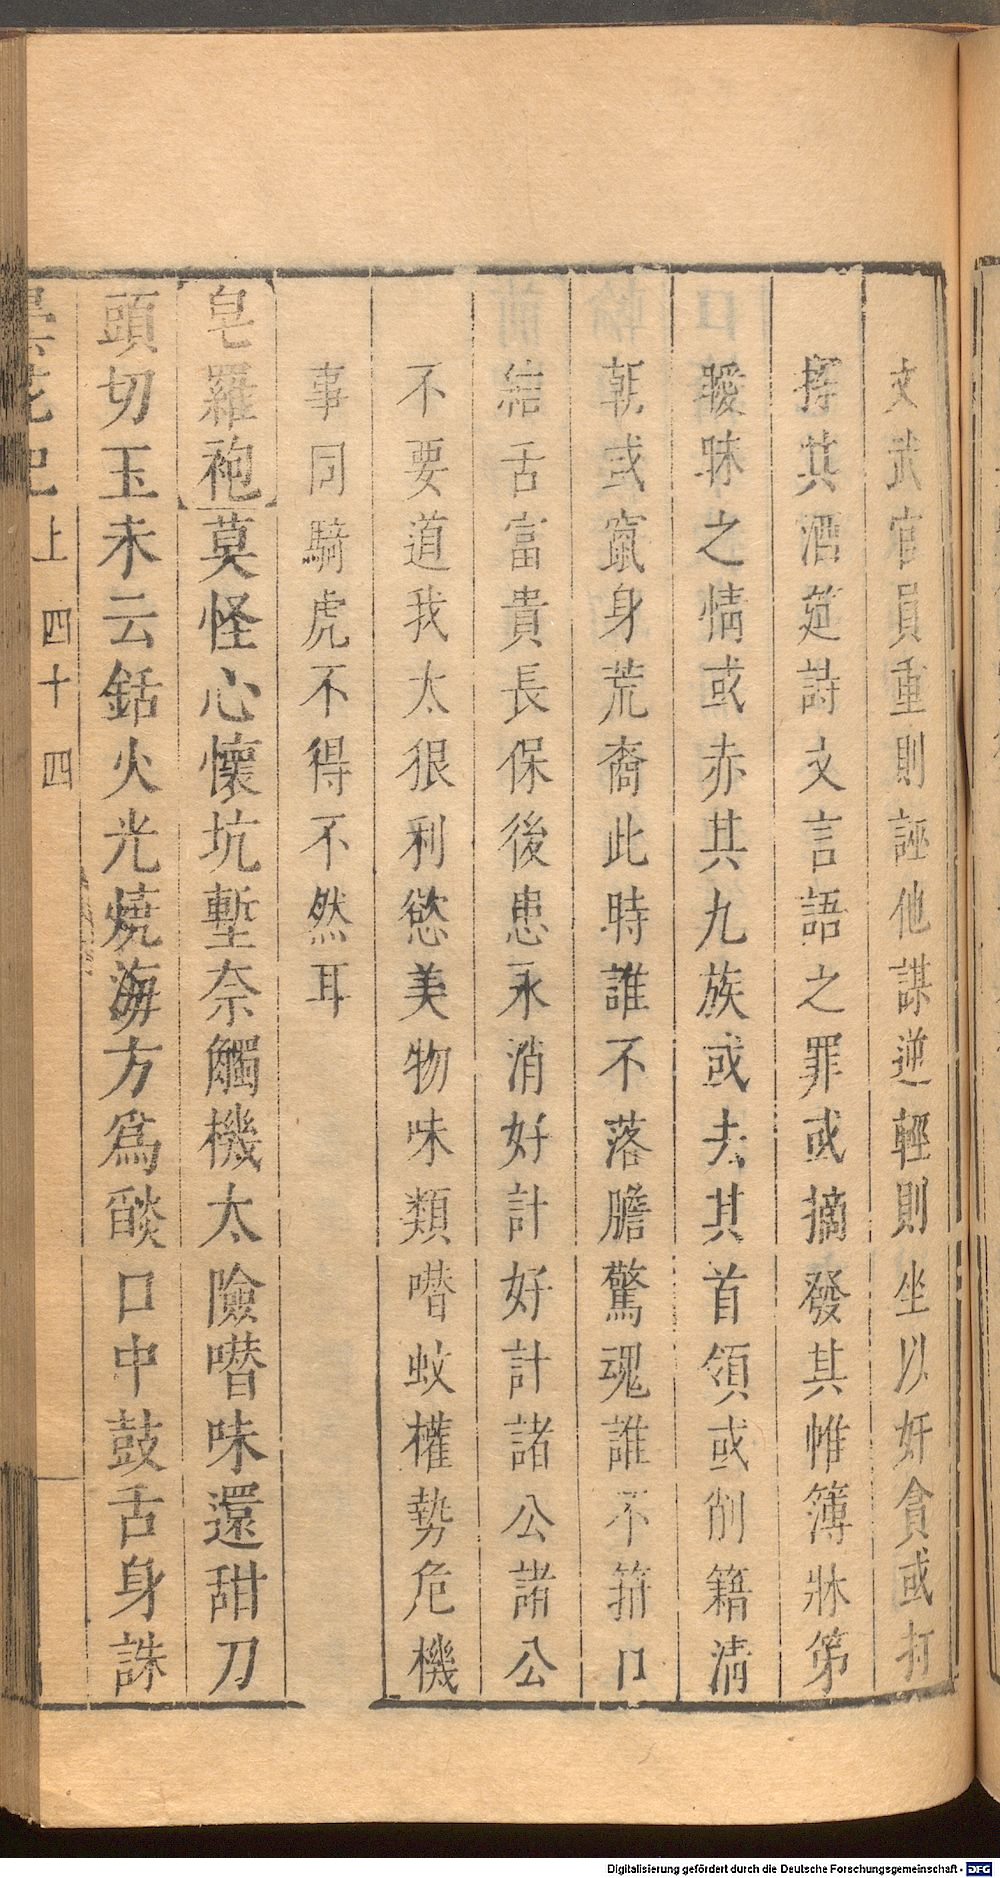 文武官員重則誣他謀逆輕則坐以奸貪或打
擇其酒筵詩文言語之罪或摘發其帷簿牀第
曖昧之情或赤其九族或去其首領或削籍清
朝或竄身荒裔此時誰不落膽驚魂誰不箝口
結舌富貴長保後患永消好計好計諸公諸公
不要道我太狠利慾美物味類噆蚊權勢危機
事同騎虎不得不然耳
皂羅袍莫怪心懷坑塹奈觸機太險噆味還甜刀
頭切玉未云銛火光燒海方為燄口中鼓舌身誅
曇花記 上 四十四
Digitalisierung gefördert durch die Deutsche Forschungsgemeinschaft - DFG